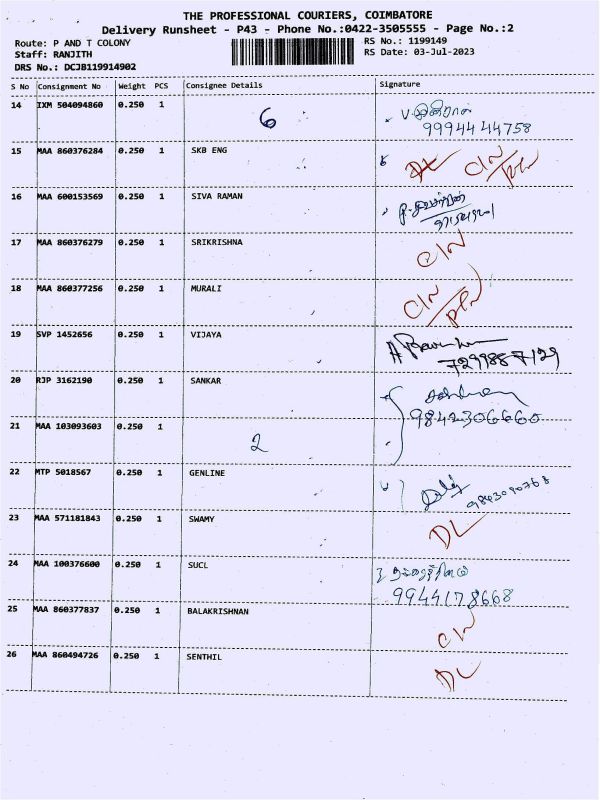 THE PROFESSIONAL COURIERS, COIMBATORE
Delivery Runsheet - P43 - Phone No.:0422-3505555 - Page No.:2
Route: P AND T COLONY
Staff: RANJITH
DRS No.: DCJB119914902
RS No.: 1199149
RS Date: 03-Jul-2023
S No Consignment No Weight PCS Consignee Details Signature
14 IXM 504094860 0.250 1 6
9994444758
15 MAA 860376284 0.250 1 SKB ENG DL
16 MAA 600153569 0.250 1 SIVA RAMAN
17 MAA 860376279 0.250 1 SRIKRISHNA
18 MAA 860377256 0.250 1 MURALI
19 SVP 1452656 0.250 1 VIJAYA
7299887129
20 RJP 3162190 0.250 1 SANKAR
9842306660
21 MAA 103093603 0.250 1 2
22 MTP 5018567 0.250 1 GENLINE
9843090768
23 MAA 571181843 0.250 1 SWAMY DL
24 MAA 100376600 0.250 1 SUCL
9944178668
25 MAA 860377837 0.250 1 BALAKRISHNAN
26 MAA 860494726 0.250 1 SENTHIL DL